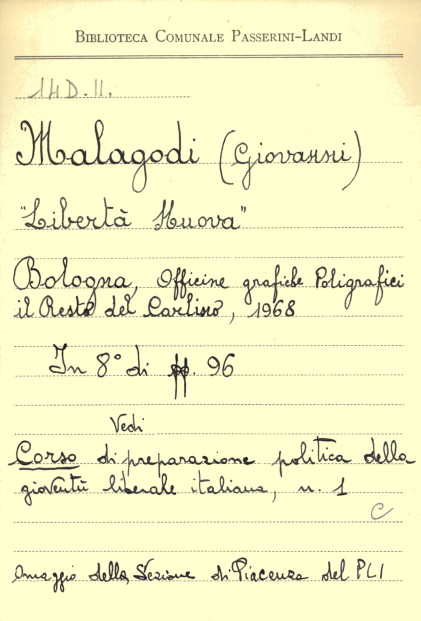 BIBLIOTECA COMUNALE PASSERINI-LANDI
14D.II.
Malagodi (Giovanni)
"Libertà Nuova"
Bologna, Officine grafiche Poligrafici
il Resto del Carlino, 1968
In 8° di pp. 96
Vedi
Corso di preparazione politica della
gioventù liberale italiana, n. 1
C
Omaggio della Sezione di Piacenza del PLI